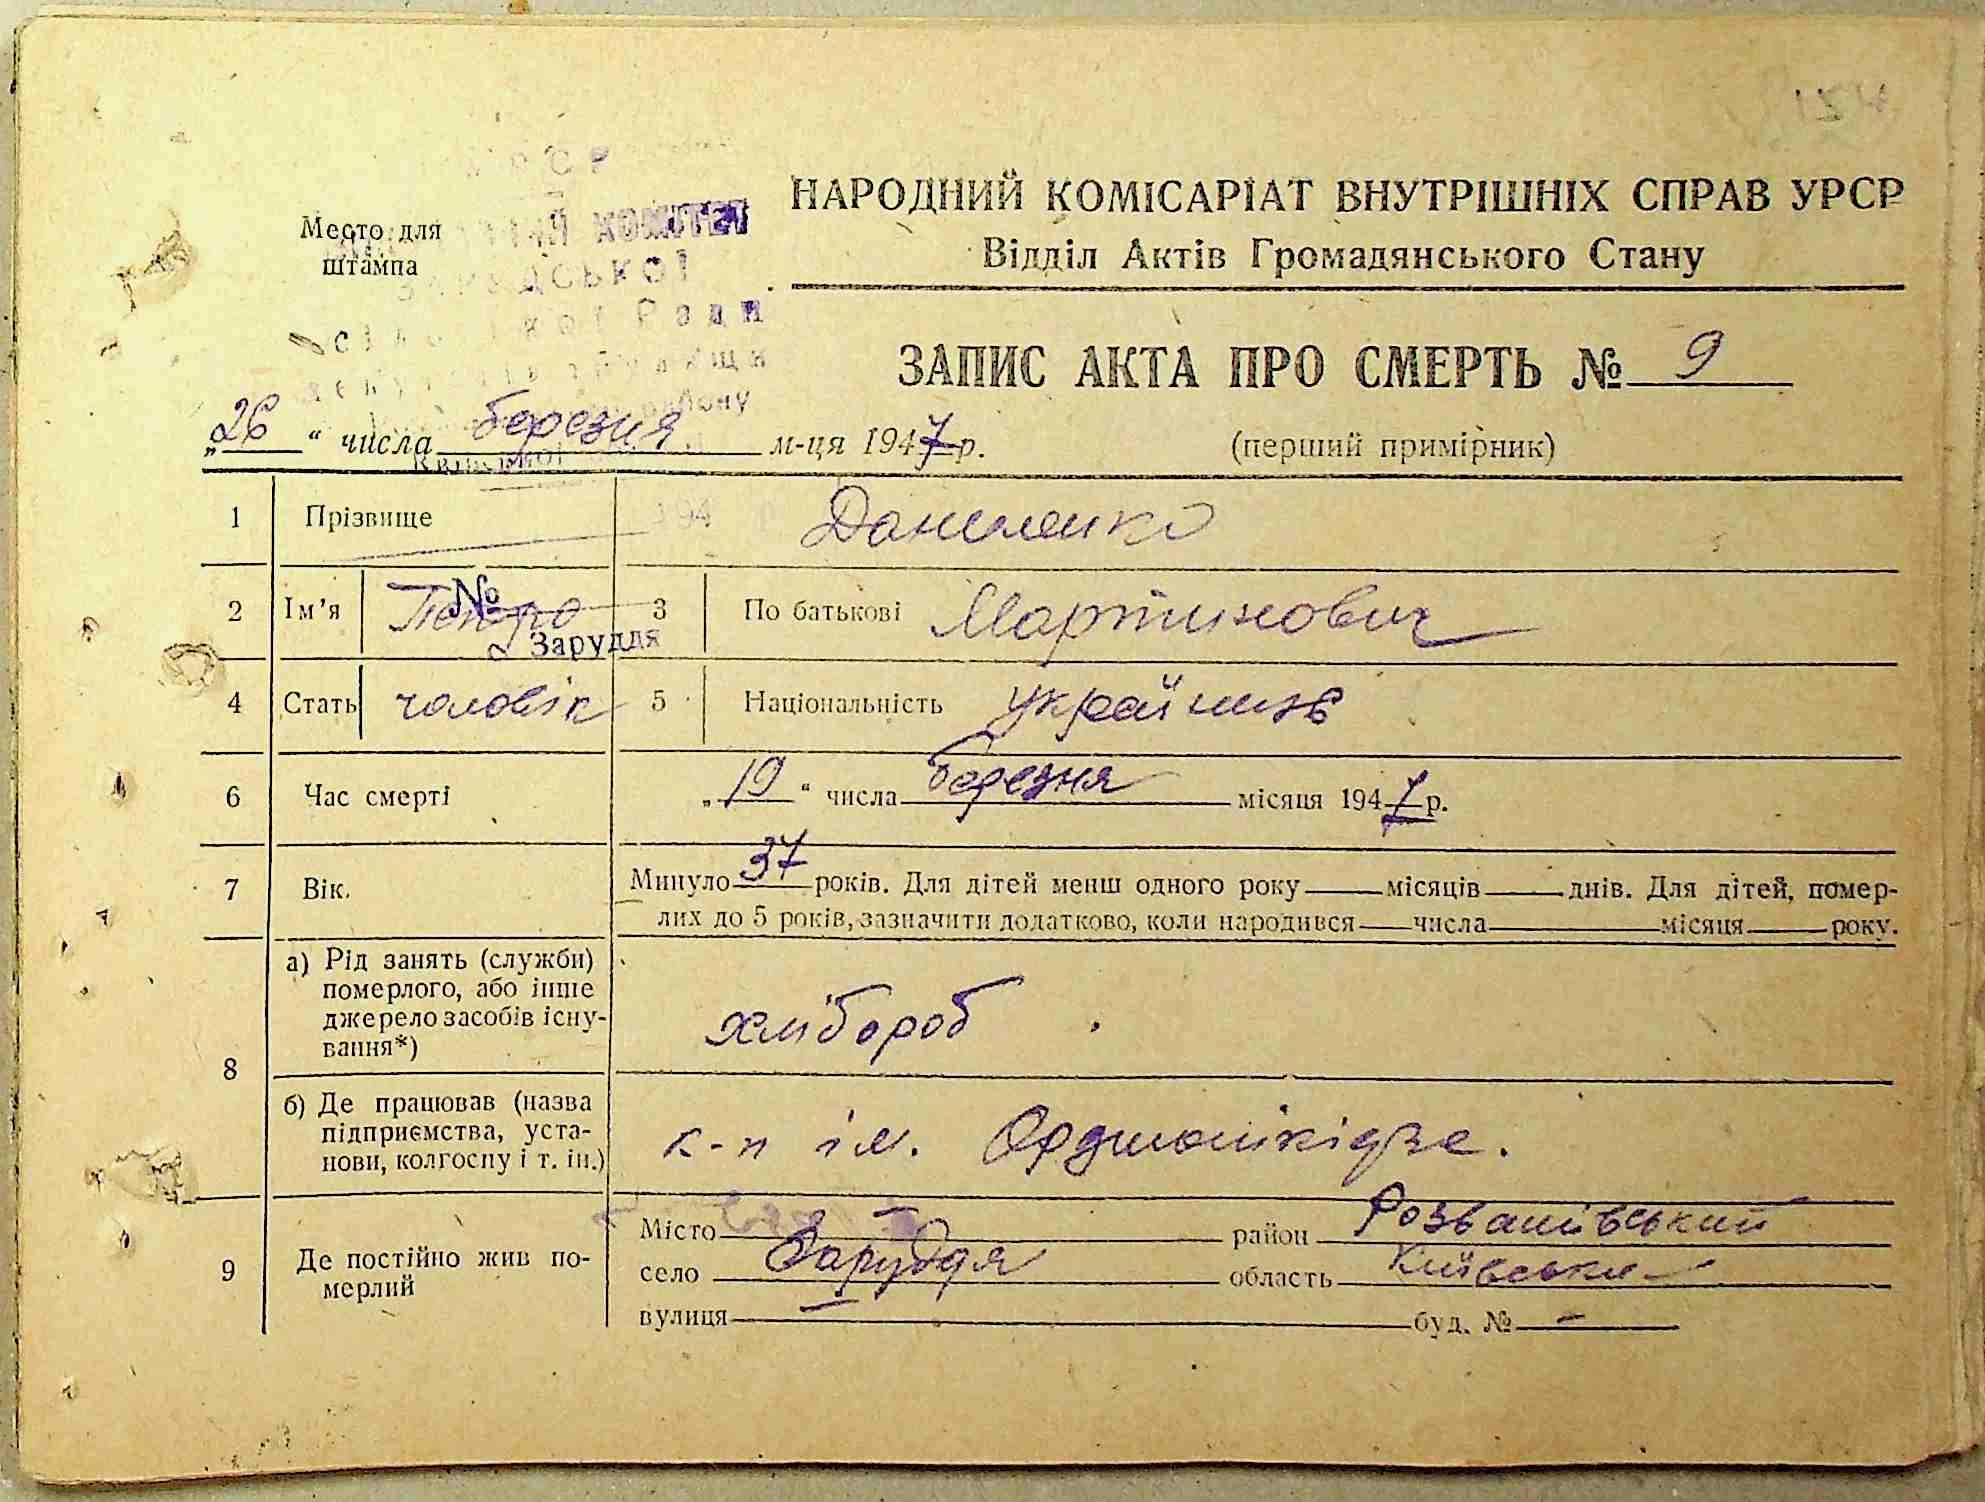 Место для
штампа
КОМІТЕТ
НАРОДНИЙ КОМІСАРІАТ ВНУТРІШНІХ СПРАВ УРСР
Відділ Актів Громадянського Стану
ЗАПИС АКТА ПРО СМЕРТЬ № 9
„26“ числа березня м-ця 1947 р.
(перший примірник)
1 Прізвище Даниленко
2 Ім’я Петро 3 По батькові Мартинович
№
Заруддя
4 Стать чоловік 5 Національність українець
6 Час смерті „19“ числа березня місяця 1947 р.
7 Вік. Минуло 37 років. Для дітей менш одного року місяців днів. Для дітей, помер-
лих до 5 років, зазначити додатково, коли народився числа місяця року.
8
а) Рід занять (служби)
померлого, або інше
джерело засобів існу-
вання*)
хлібороб
б) Де працював (назва
підприємства, уста-
нови, колгоспу і т. ін.)
к-п ім. Орджонікідзе.
9 Де постійно жив по-
мерлий
Місто – район Розважівський
село Заруддя область Київська
вулиця – буд. № –